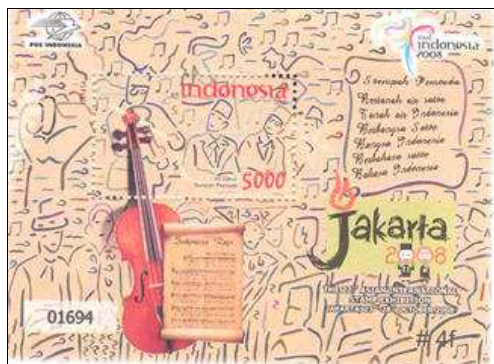 POS INDONESIA
Visit
indonesia
2008
indonesia
Sumpah Pemuda
Bertanah air satu
Tanah air Indonesia
Berbangsa Satu
Bangsa Indonesia
Berbahasa satu
Bahasa Indonesia
Sumpah Pemuda
5000
Indonesia Raya
Jakarta
2008
THE 23rd ASIAN INTERNATIONAL
STAMP EXHIBITION
OCTOBER 2008
01694
# 4f